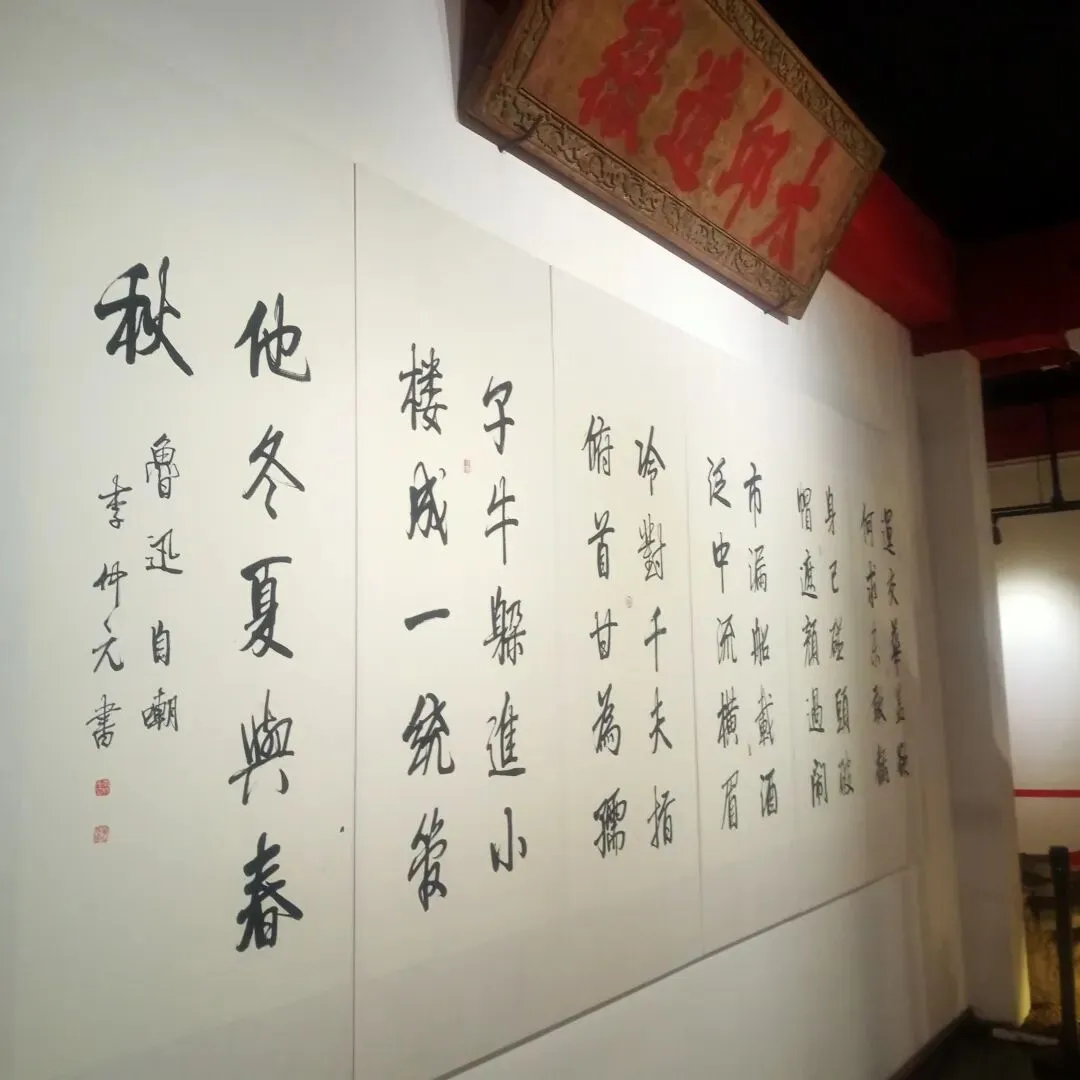 太邱遺徽
運交華蓋欲
何求未敢翻
身已碰頭破
帽遮顏過闹
市漏船載酒
泛中流橫眉
冷對千夫指
俯首甘為孺
子牛躲進小
楼成一统管
他冬夏與春
秋
魯迅自嘲
李仲元書